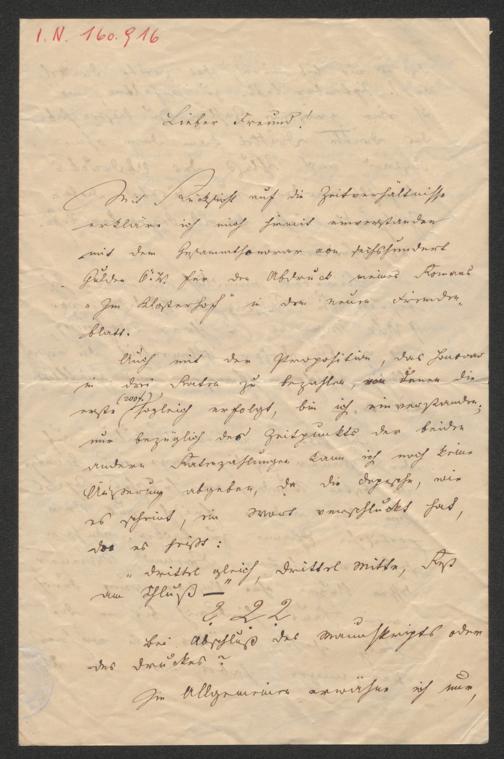 I. N. 160.916
Lieber Freund!
Mit Rücksicht auf die Zeitverhältnisse
erkläre ich mich hiemit einverstanden
mit dem Gesammthonorar von sechshundert
Gulden Ö. W. für den Abdruck meines Romans
„Im Klosterhof" in dem neuen Fremden-
blatt.
Auch mit der Proposition, das Honorar
in drei Raten zu bezahlen, von denen die
erste (200 f.) sogleich erfolgt, bin ich einverstanden;
nur bezüglich des Zeitpunkts der beiden
andern Ratenzahlungen kann ich noch keine
Äußerung abgeben, da die Depesche, wie
es scheint, ein Wort verschluckt hat,
da es heißt:
„drittel gleich, drittel Mitte, Rest
am Schluß —"
???
bei Abschluß des Manuskripts oder
des Druckes?
Im Allgemeinen erwähne ich nur,